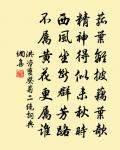 菰葉離披藕葉欹
精神得似未秋時
西風坐斷群芳路
不屬黄花更屬誰
洪咨夔葵菊二絕詞典
網集